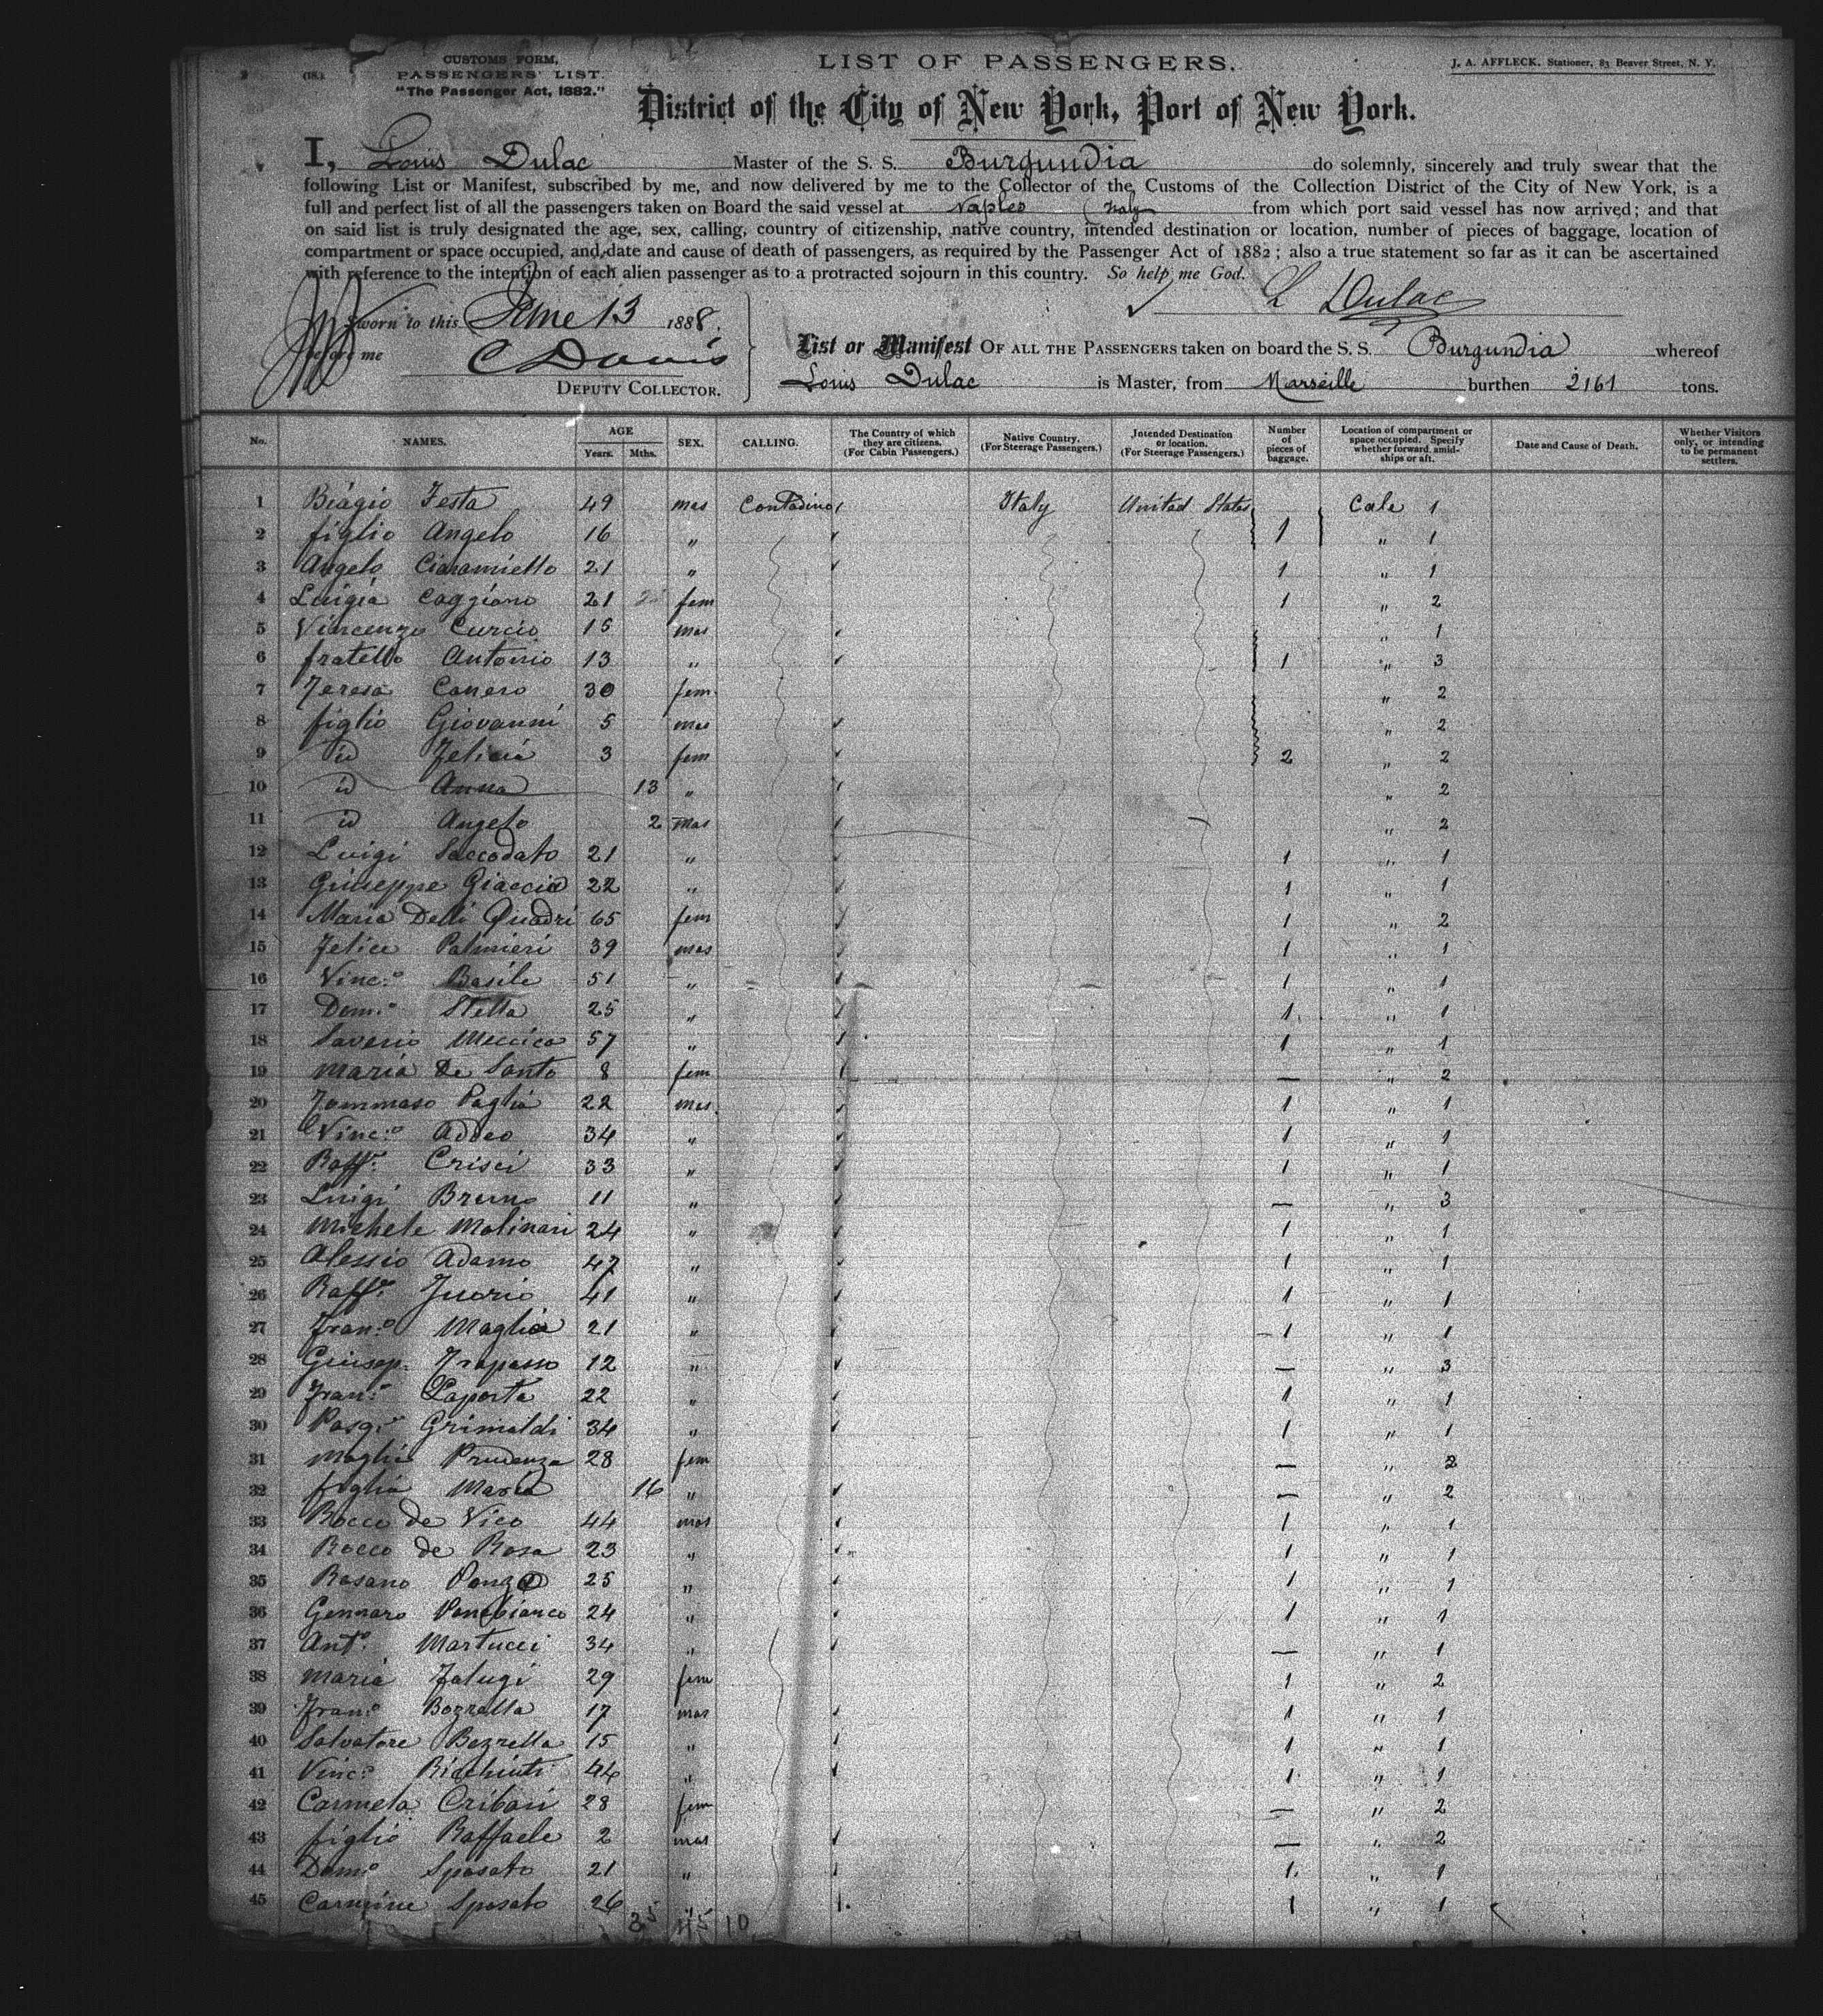 CUSTOMS FORM,
PASSENGERS' LIST.
"The Passenger Act, 1882."
LIST OF PASSENGERS.
J. A. AFFLECK, Stationer, 83 Beaver Street, N. Y.
District of the City of New York, Port of New York.
I, Louis Dulac Master of the S. S. Burgundia do solemnly, sincerely and truly swear that the
following List or Manifest, subscribed by me, and now delivered by me to the Collector of the Customs of the Collection District of the City of New York, is a
full and perfect list of all the passengers taken on Board the said vessel at Naples (Italy from which port said vessel has now arrived; and that
on said list is truly designated the age, sex, calling, country of citizenship, native country, intended destination or location, number of pieces of baggage, location of
compartment or space occupied, and date and cause of death of passengers, as required by the Passenger Act of 1882; also a true statement so far as it can be ascertained
with reference to the intention of each alien passenger as to a protracted sojourn in this country. So help me God.
L Dulac
Sworn to this June 13 1888.
before me C Davis
DEPUTY COLLECTOR.
List or Manifest OF ALL THE PASSENGERS taken on board the S. S. Burgundia whereof
Louis Dulac is Master, from Marseille burthen 2161 tons.
No. NAMES. AGE Years. Mths. SEX. CALLING. The Country of which they are citizens. (For Cabin Passengers.) Native Country. (For Steerage Passengers.) Intended Destination or location. (For Steerage Passengers.) Number of pieces of baggage. Location of compartment or space occupied. Specify whether forward, amidships or aft. Date and Cause of Death. Whether Visitors only, or intending to be permanent settlers.
1 Biagio Festa 49 mas Contadino Italy United States Cale 1
2 figlio Angelo 16 " 1 " 1
3 Angelo Ciaramiello 21 " 1 " 1
4 Luigia Caggiano 21 fem 1 " 2
5 Vincenzo Curcio 15 mas " 1
6 fratello Antonio 13 " 1 " 3
7 Teresa Canero 30 fem " 2
8 figlio Giovanni 5 mas " 2
9 id Felicia 3 fem 2 " 2
10 id Anna 13 " " 2
11 id Angelo 2 mas " 2
12 Luigi Saccodato 21 " 1 " 1
13 Giuseppe Giaccio 22 " 1 " 1
14 Maria Delli Quadri 65 fem 1 " 2
15 Felice Palmieri 39 mas 1 " 1
16 Vinc:o Basile 51 " 1 " 1
17 Dom:o Stella 25 " 1 " 1
18 Saverio Meccica 57 " 1 " 1
19 Maria De Santo 8 fem — " 2
20 Tommaso Paglia 22 mas 1 " 1
21 Vinc:o Addeo 34 " 1 " 1
22 Raff:e Crisci 33 " 1 " 1
23 Luigi Bruno 11 " — " 3
24 Michele Molinari 24 " 1 " 1
25 Alessio Adamo 47 " 1 " 1
26 Raff:e Iuorio 41 " 1 " 1
27 Fran:o Maglia 21 " 1 " 1
28 Giusep. Trapasso 12 " — " 3
29 Fran:o Laporta 22 " 1 " 1
30 Pasq:e Grimaldi 34 " 1 " 1
31 Moglie Prudenza 28 fem — " 2
32 figlia Maria 16 " — " 2
33 Rocco de Vico 44 mas 1 " 1
34 Rocco de Rosa 23 " 1 " 1
35 Rosano Ponzo 25 " 1 " 1
36 Gennaro Panebianco 24 " 1 " 1
37 Ant:o Martucci 34 " — " 1
38 Maria Falugi 29 fem 1 " 2
39 Fran:o Bozzella 17 mas 1 " 1
40 Salvatore Bozzella 15 " 1 " 1
41 Vinc:o Bicchinti 44 " 1 " 1
42 Carmela Cribari 28 fem — " 2
43 figlio Raffaele 2 mas — " 2
44 Dom:o Sposato 21 " 1 " 1
45 Carmine Sposato 26 " 1 " 1
35 45 10